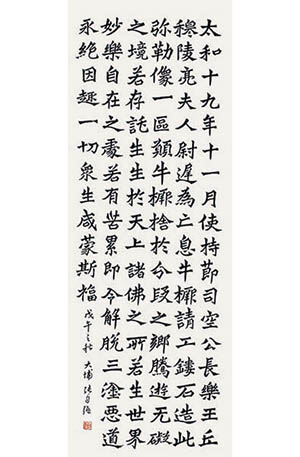 太和十九年十一月使持節司空公長樂王丘
穆陵亮夫人尉遲為亡息牛橛請工鏤石造此
弥勒像一區顗牛橛捨於分段之鄉騰遊无礙
之境若存託生生於天上諸佛之所若生世界
妙樂自在之處若有苦累即令解脫三塗惡道
永絕因趣一切衆生咸蒙斯福
戊午之秋 大埔